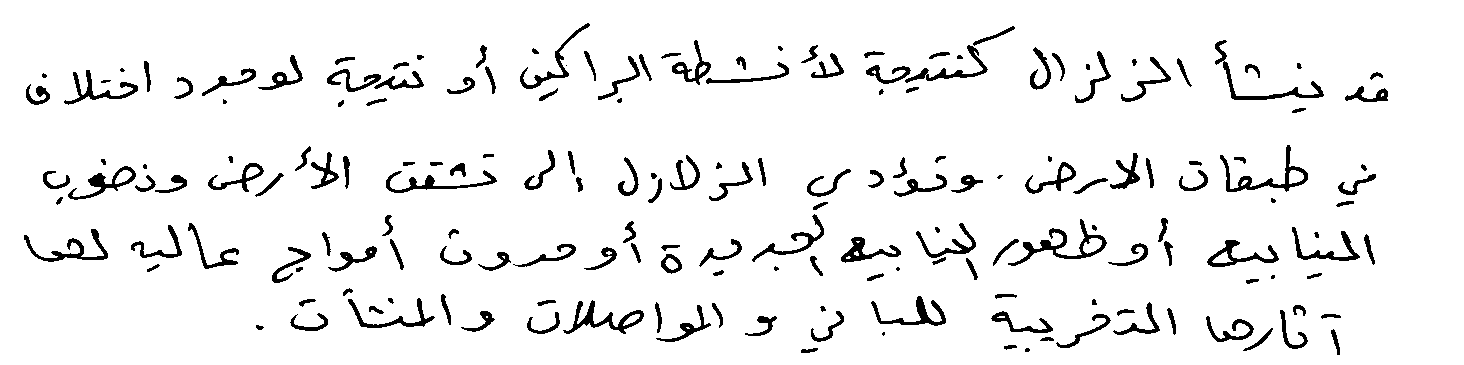 قد ينشأ الزلزال كنتيجة لأنشطة البراكين أو نتيجة لوجود اختلاف
في طبقات الارض. وتؤدي الزلازل إلى تشقق الأرض ونضوب
الينابيع أو ظهور الينابيع الجديدة أو حدوث أمواج عاليه لها
آثارها التخريبية للمباني والمواصلات والمنشآت.